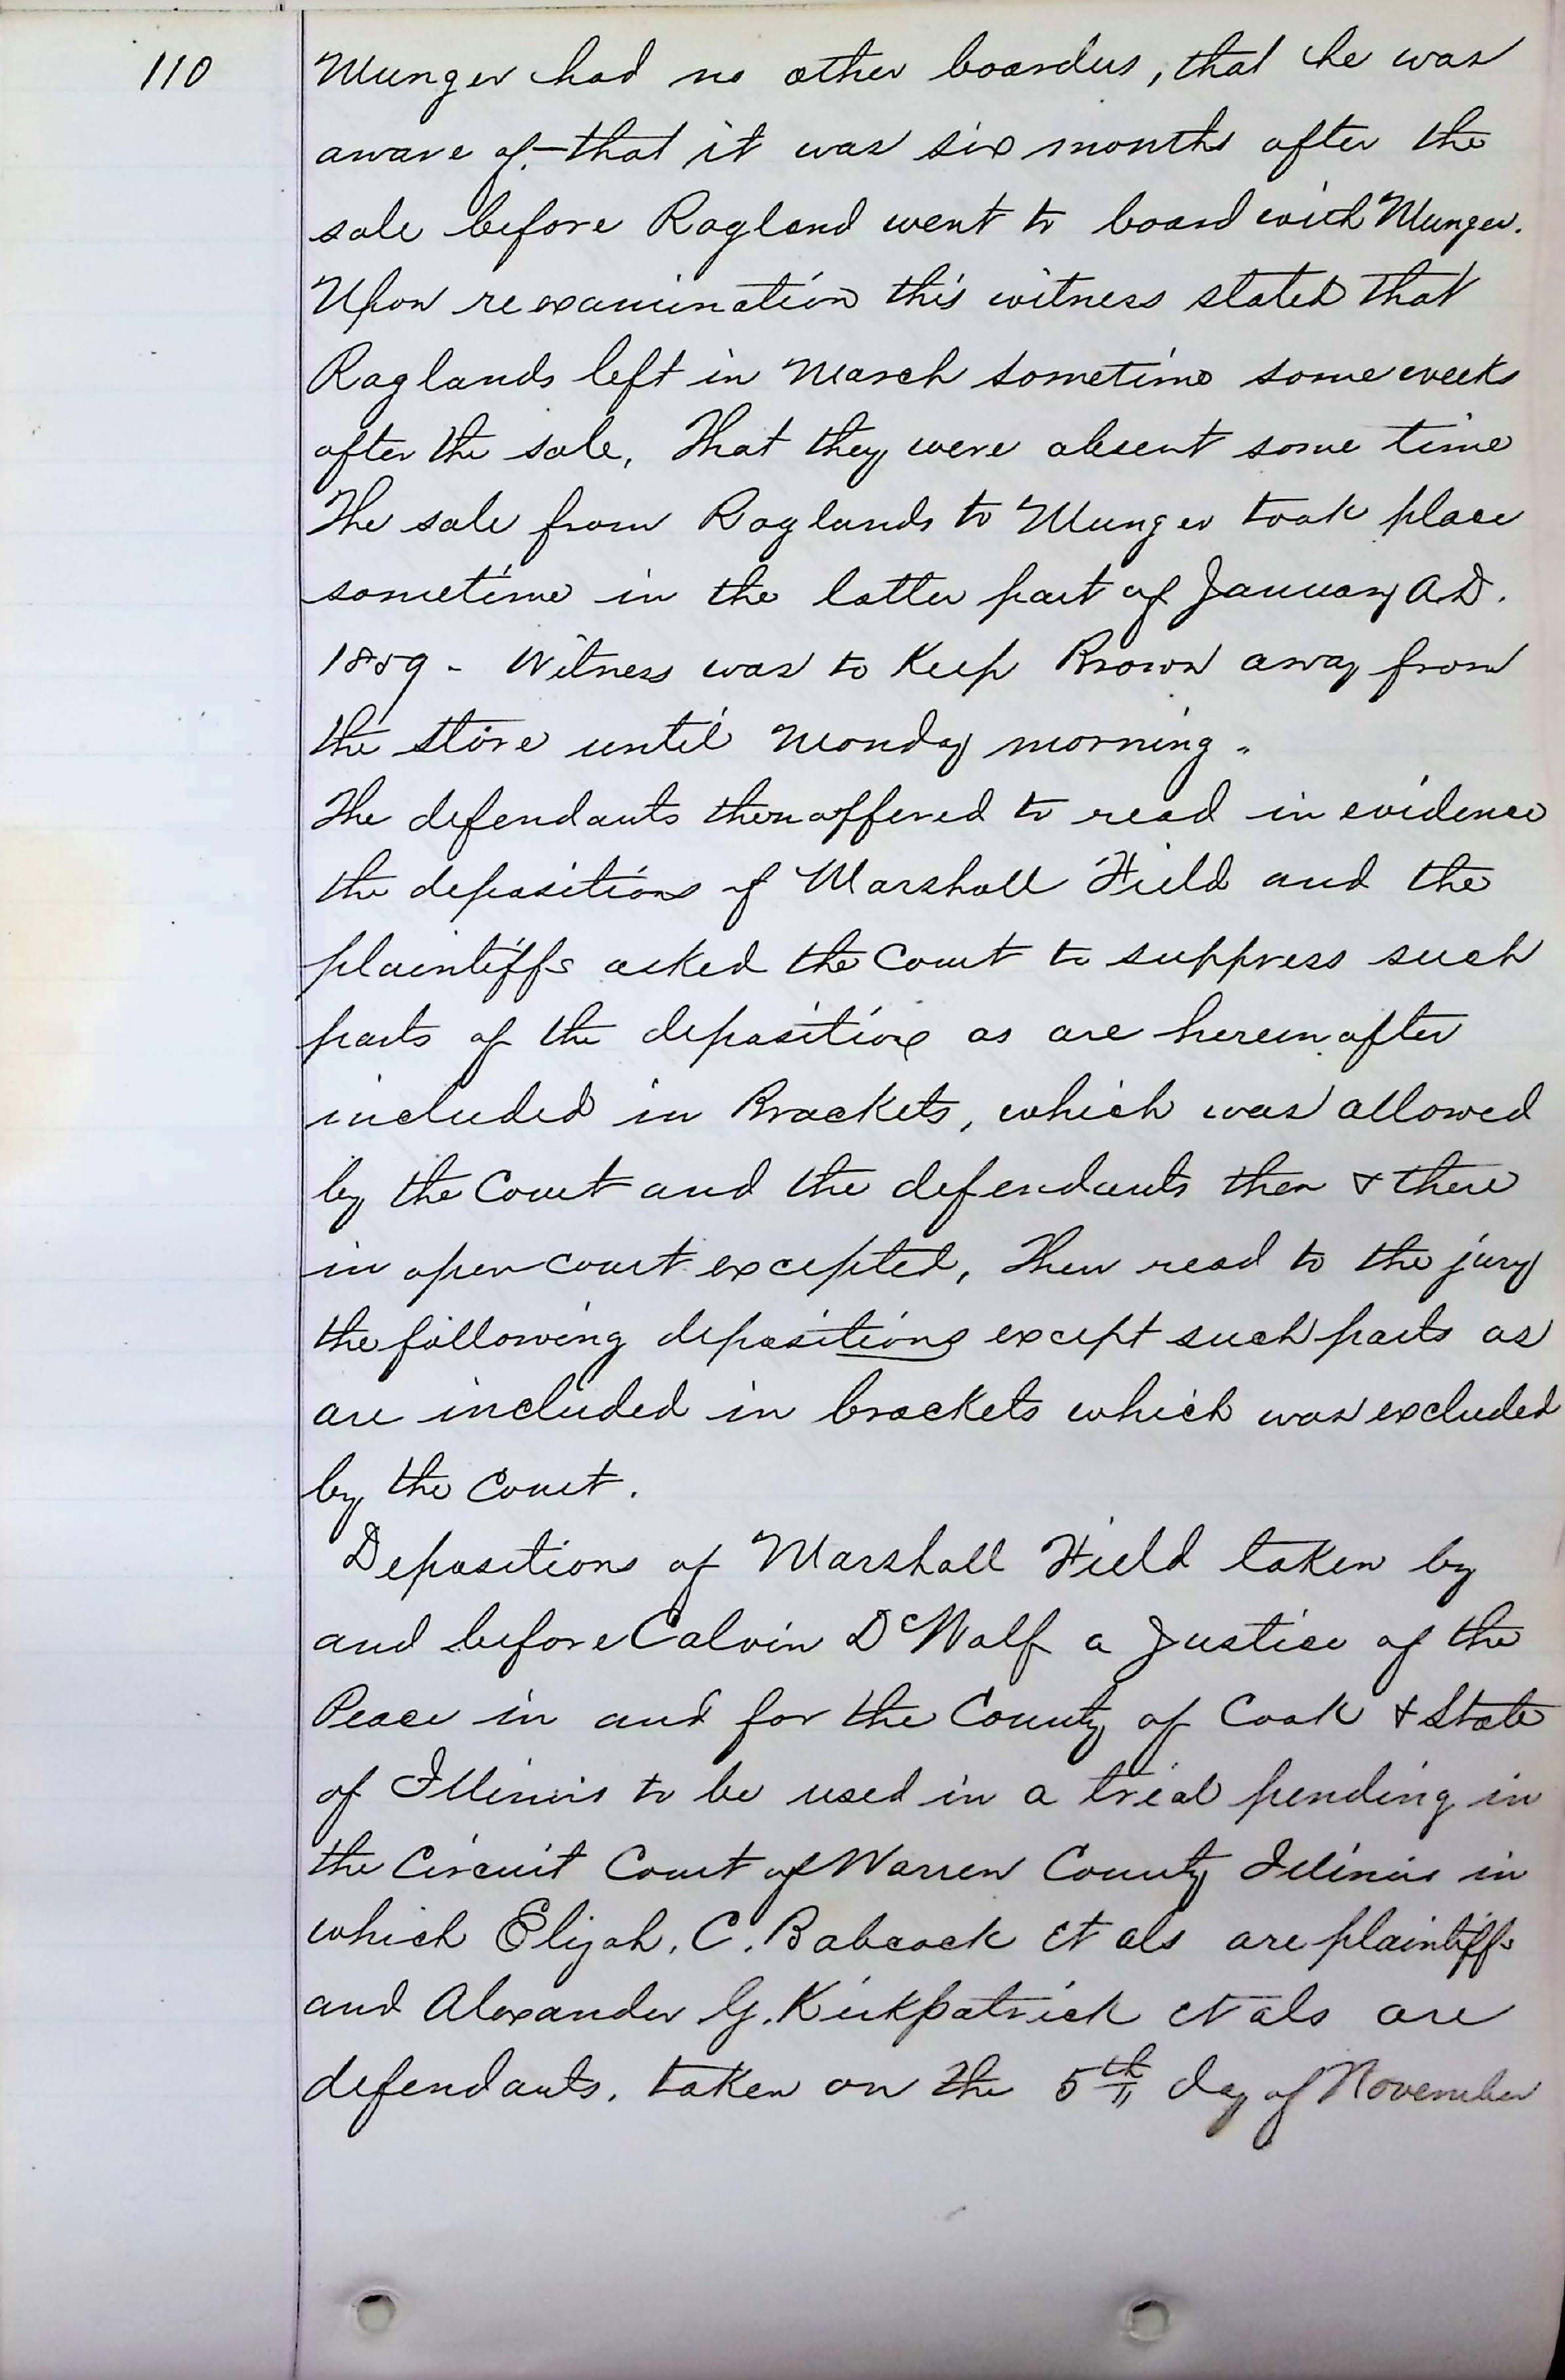 110
Munger had no other boarders, that he was
aware of - that it was six months after the
sale before Ragland went to board with Munger.
Upon reexamination this witness stated that
Raglands left in March sometime some weeks
after the sale, That they were absent some time
The sale from Raglands to Munger took place
sometime in the latter part of January A.D.
1859 - Witness was to Keep Brown away from
the store until Monday morning.
The defendants then offered to read in evidence
the depositions of Marshall Field and the
plaintiffs asked the Court to suppress such
parts of the depositions as are hereinafter
included in Brackets, which was allowed
by the Court and the defendants then & there
in open court excepted, Then read to the jury
the following depositions except such parts as
are included in brackets which was excluded
by the Court.
Depositions of Marshall Field taken by
and before Calvin DeWolf a Justice of the
Peace in and for the County of Cook & State
of Illinois to be used in a trial pending in
the Circuit Court of Warren County Illinois in
which Elijah. C. Babcock et als are plaintiffs
and Alexander G. Kirkpatrick et als are
defendants. taken on the 5th day of November